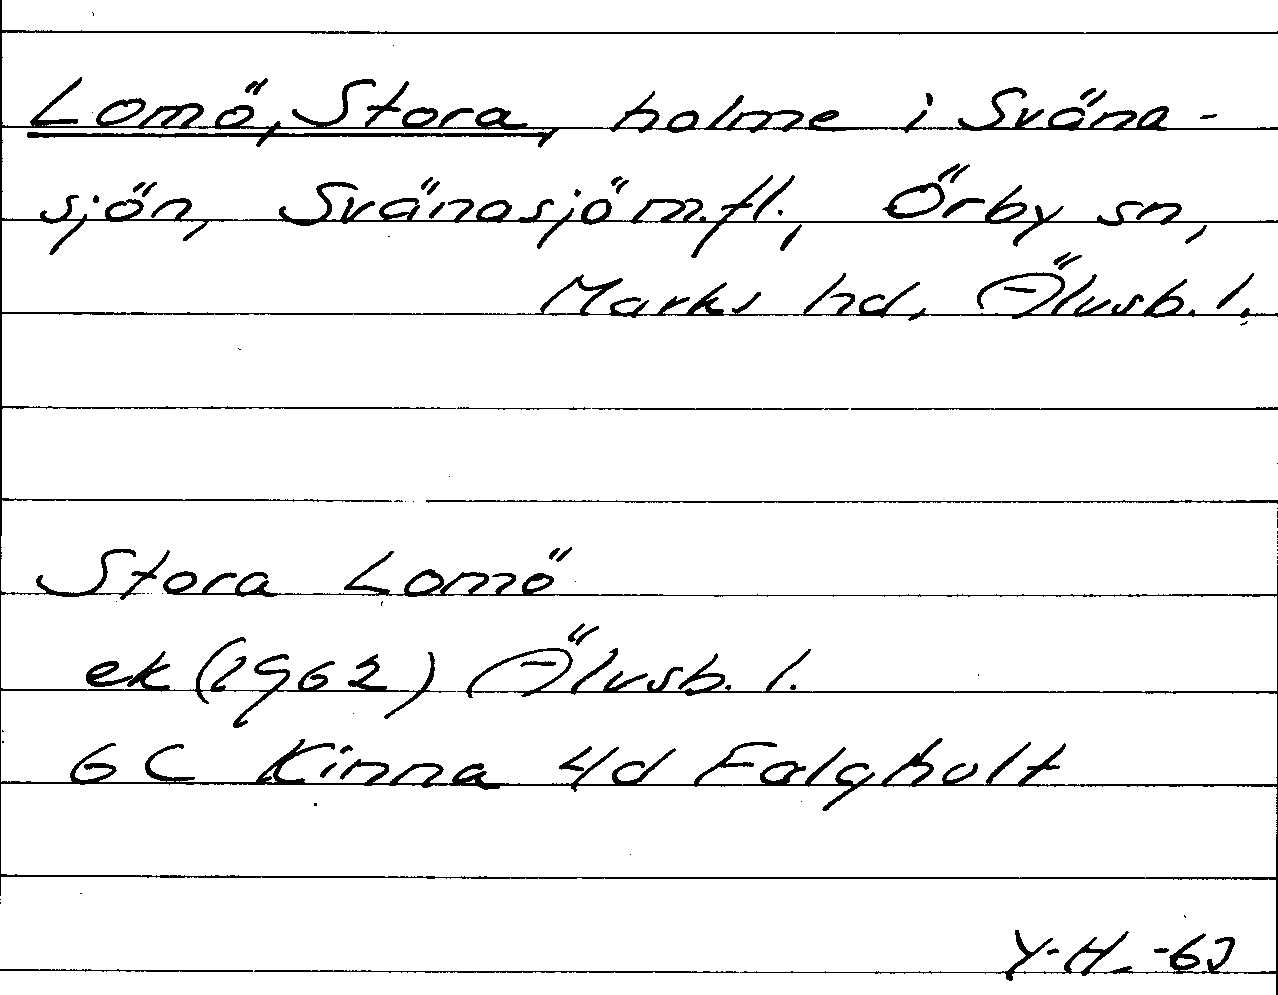 Lomö, Stora, holme i Sväna-
sjön, Svänasjö m.fl., Örby sn,
Marks hd, Älvsb. l.
Stora Lomö
ek (1962) Älvsb. l.
6 C Kinna 4d Falgholt
Y.H. -63